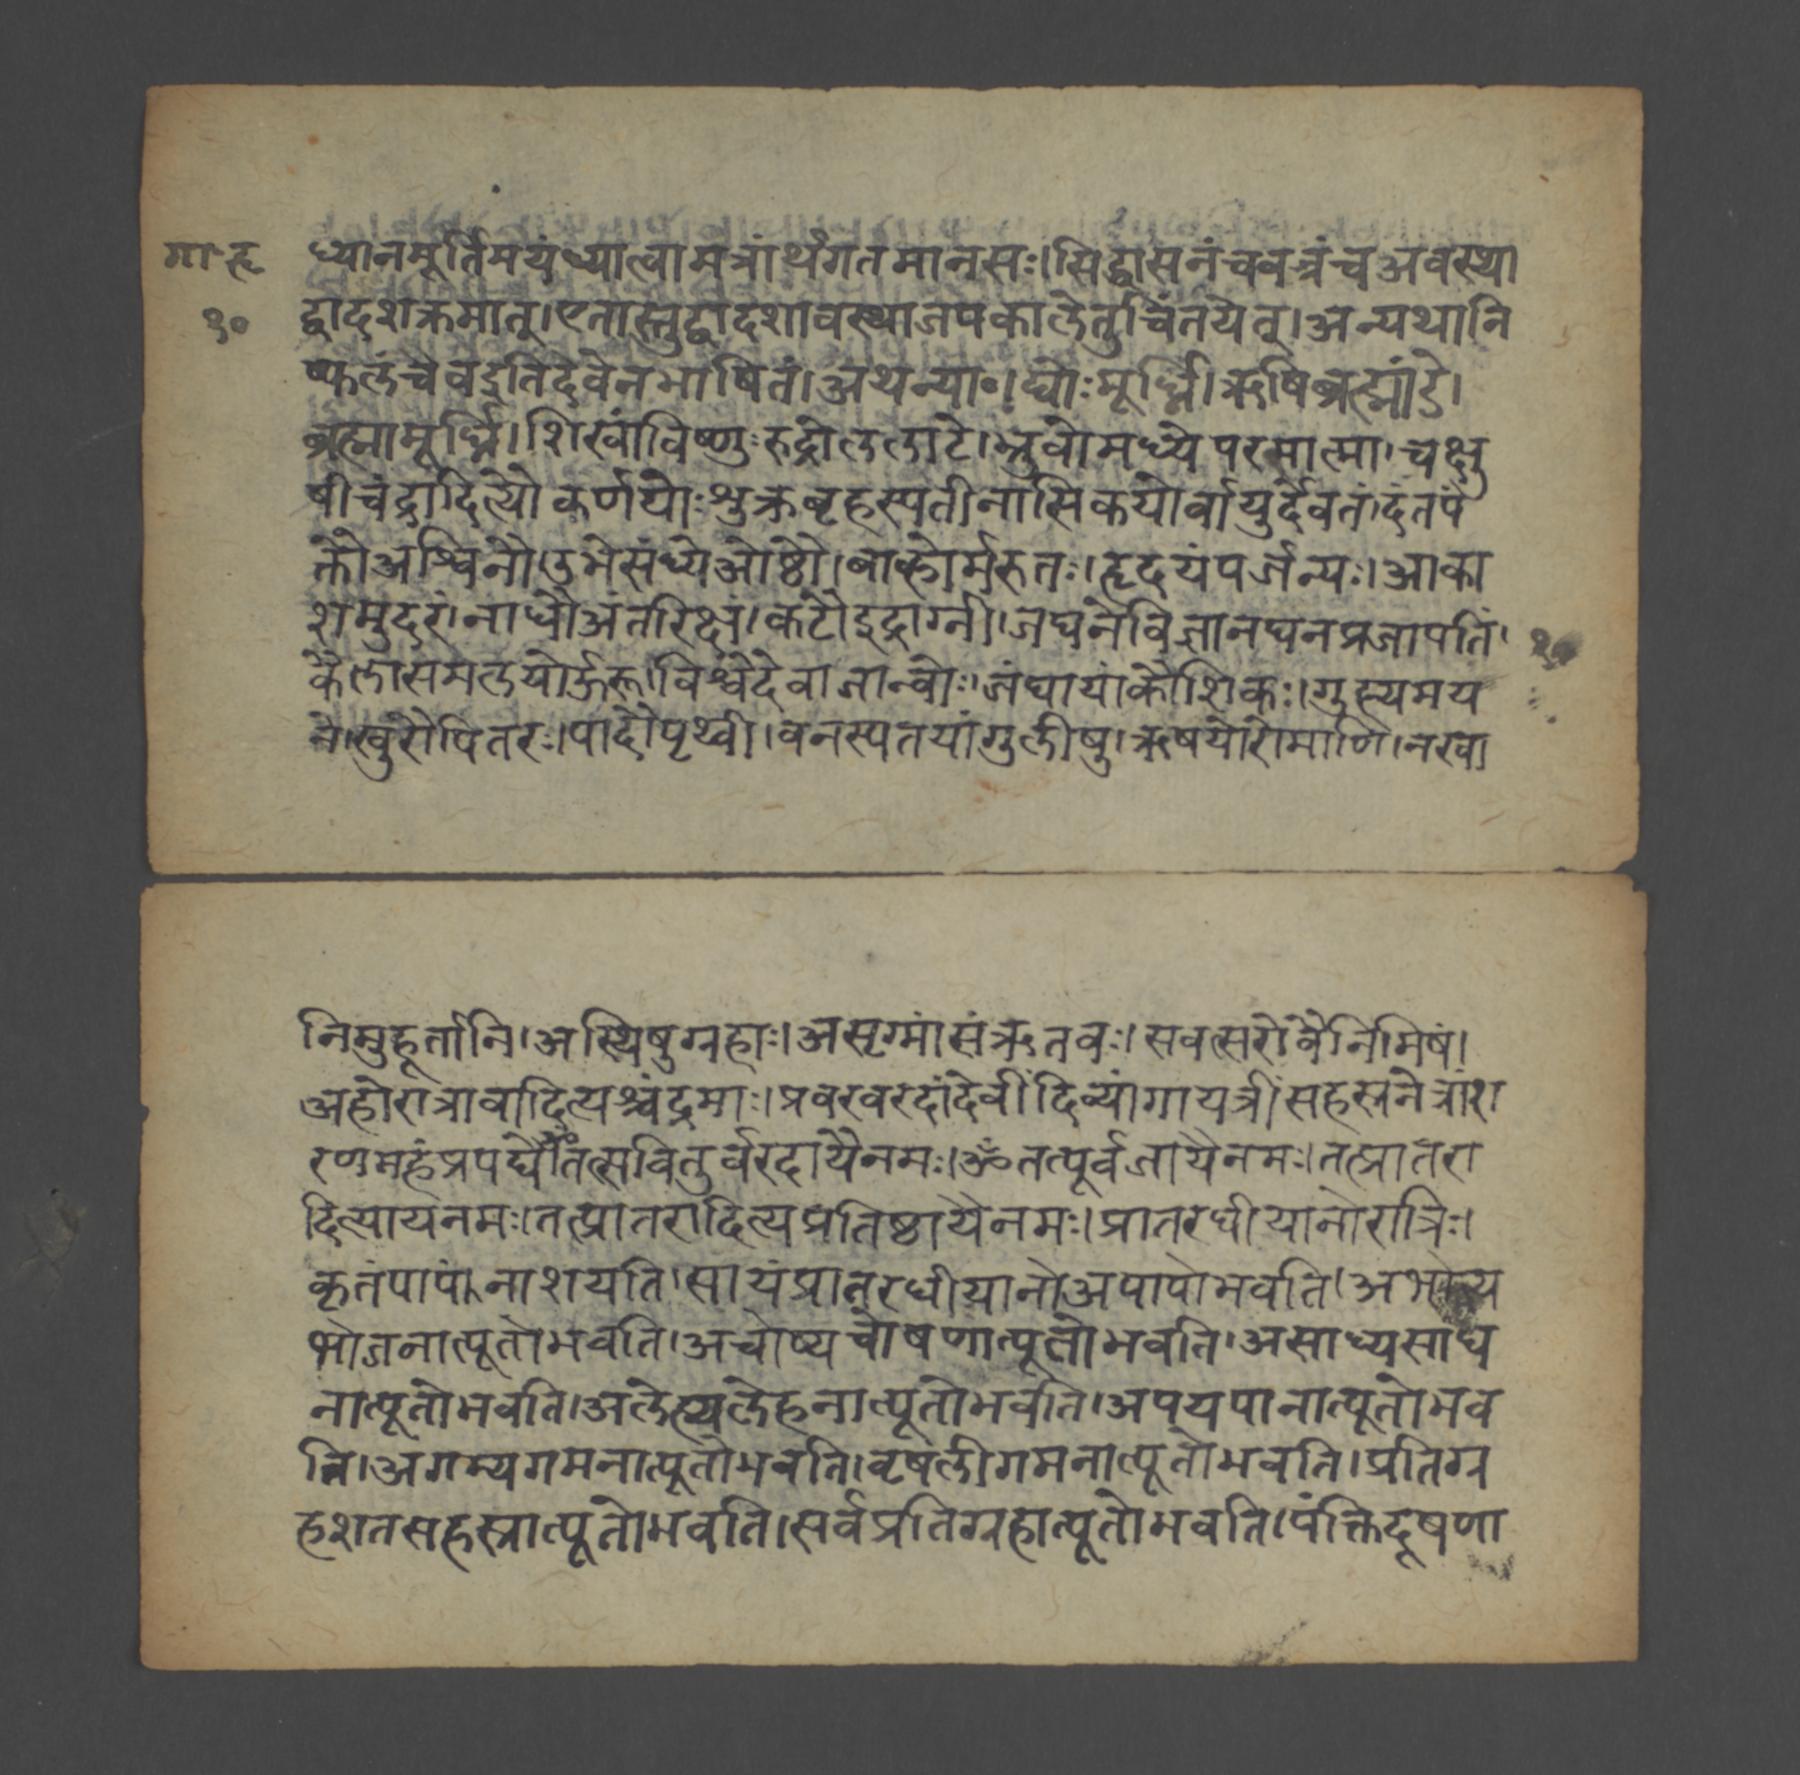 गा॰हृ
१०
ध्यानमूर्तिमयंध्यात्वामंत्रार्थगतमानसः।सिद्धासनंचवक्त्रंचअवस्था
द्वादशक्रमात्।एतास्तुद्वादशावस्थाजपकालेतुचिंतयेत्।अन्यथानि
ष्फलंचैवइतिदेवेनभाषितं।अथन्या॰।द्यौःमूर्ध्नि।ऋषिब्रह्मांडे।
ब्रह्मामूर्ध्नि।शिखांविष्णुःरुद्रोललाटे।भ्रुवोमध्येपरमात्मा।चक्षु
षीचंद्रादित्यौकर्णयोःशुक्रबृहस्पतीनासिकयोर्वायुर्दैवतं।दंतपं
क्तौअश्विनौउभेसंध्येओष्ठौ।बाह्वोर्मरुतः।हृदयंपर्जन्यः।आका
शमुदरं।नाभौअंतरिक्षं।कटौइंद्राग्नी।जघनेविज्ञानघनप्रजापतिं।
१०
कैलासमलयोर्ऊरू।विश्वेदेवाजान्वोः।जंघायांकौशिकः।गुह्यमय
नं।खुरौपितरः।पादौपृथ्वी।वनस्पतयांगुलीषु।ऋषयोरोमाणि।नखा
निमुहूर्तानि।अस्थिषुग्रहाः।असृग्मांसंऋतवः।संवत्सरोवैनिमिषं।
अहोरात्रावादित्यश्चंद्रमाः।प्रवरवरदांदेवींदिव्यांगायत्रींसहस्रनेत्रांश
रणमहंप्रपद्येॐतत्सवितुर्वरदायैनमः।ॐतत्पूर्वजायैनमः।तत्प्रातरा
दित्यायनमः।तत्प्रातरादित्यप्रतिष्ठायैनमः।प्रातरधीयानोरात्रिः।
कृतंपापंनाशयति।सायंप्रातरधीयानोअपापोभवति।अभोज्य
भोजनात्पूतोभवति।अचोष्यचोषणात्पूतोभवति।असाध्यसाध
नात्पूतोभवति।अलेह्यलेहनात्पूतोभवति।अपेयपानात्पूतोभव
ति।अगम्यगमनात्पूतोभवति।वृषलीगमनात्पूतोभवति।प्रतिग्र
हशतसहस्रात्पूतोभवति।सर्वप्रतिग्रहात्पूतोभवति।पंक्तिदूषणा